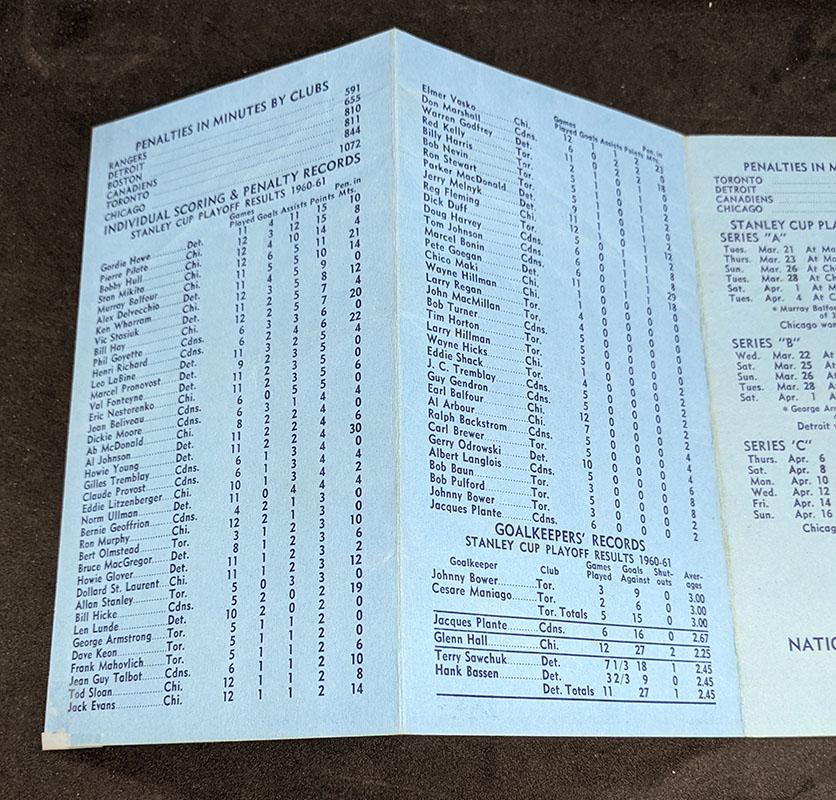 PENALTIES IN MINUTES BY CLUBS
RANGERS 591
DETROIT 655
BOSTON 810
CANADIENS 811
TORONTO 844
CHICAGO 1072
INDIVIDUAL SCORING & PENALTY RECORDS
STANLEY CUP PLAYOFF RESULTS 1960-61
Games Played Goals Assists Points Pen. in Mts.
Gordie Howe Det. 11 4 11 15 10
Pierre Pilote Chi. 12 3 12 15 8
Bobby Hull Chi. 12 4 10 14
Stan Mikita Chi. 12 6 5 11 21
Murray Balfour Chi. 11 5 5 10 14
Alex Delvecchio Det. 11 4 5 9 0
Ken Wharram Chi. 12 3 5 8 12
Vic Stasiuk Det. 11 2 5 7 4
Bill Hay Chi. 12 2 5 7 20
Phil Goyette Cdns. 6 3 3 6 0
Henri Richard Cdns. 6 2 4 6 22
Leo LaBine Det. 11 3 2 5 4
Marcel Pronovost Det. 9 2 3 5 0
Val Fonteyne Det. 11 2 3 5 0
Eric Nesterenko Chi. 11 2 3 5 0
Jean Beliveau Cdns. 6 0 5 5 0
Dickie Moore Cdns. 6 3 1 4 4
Ab McDonald Chi. 8 2 2 4 0
Al Johnson Det. 11 2 2 4 6
Howie Young Det. 11 2 2 4 30
Gilles Tremblay Cdns. 6 1 3 4 0
Claude Provost Cdns. 6 1 3 4 4
Eddie Litzenberger Chi. 10 1 3 4 2
Norm Ullman Det. 11 0 4 4 4
Bernie Geoffrion Cdns. 4 2 1 3 0
Ron Murphy Chi. 12 2 1 3 0
Bert Olmstead Tor. 3 1 2 3 10
Bruce MacGregor Det. 8 1 2 3 6
Howie Glover Det. 11 1 2 3 2
Dollard St. Laurent Chi. 11 1 2 3 12
Allan Stanley Tor. 5 0 3 3 0
Bill Hicke Cdns. 5 2 0 2 19
Len Lunde Det. 10 2 0 2 0
George Armstrong Tor. 5 1 1 2 0
Dave Keon Tor. 5 1 1 2 0
Frank Mahovlich Tor. 5 1 1 2 6
Jean Guy Talbot Cdns. 6 1 1 2 10
Tod Sloan Chi. 12 1 1 2 8
Jack Evans Chi. 12 1 1 2 14
Games Played Goals Assists Points Pen. in Mts.
Elmer Vasko Chi. 12 1 1 2 23
Don Marshall Cdns. 6 0 2 2 0
Warren Godfrey Det. 11 0 2 2 18
Red Kelly Tor. 2 1 0 1 0
Billy Harris Tor. 5 1 0 1 0
Bob Nevin Tor. 5 1 0 1
Ron Stewart Tor. 5 1 0 1
Parker MacDonald Det. 9 1 0 1 0
Jerry Melnyk Det. 11 1 0 1 2
Reg Fleming Chi. 12 1 0 1 12
Dick Duff Tor. 5 0 1 1 2
Doug Harvey Cdns. 6 0 1 1 8
Tom Johnson Cdns. 6 0 1 1 8
Marcel Bonin Cdns. 6 0 1 1 29
Pete Goegan Det. 11 0 1 1 18
Chico Maki Chi. 1 0 0 0 0
Wayne Hillman Chi. 1 0 0 0 0
Larry Regan Tor. 4 0 0 0 0
John MacMillan Tor. 4 0 0 0 0
Bob Turner Cdns. 5 0 0 0 0
Tim Horton Tor. 5 0 0 0 0
Larry Hillman Tor. 5 0 0 0 0
Wayne Hicks Chi. 1 0 0 0 0
Eddie Shack Tor. 4 0 0 0 2
J. C. Tremblay Cdns. 5 0 0 0 2
Guy Gendron Cdns. 5 0 0 0 2
Earl Balfour Chi. 12 0 0 0 2
Al Arbour Chi. 7 0 0 0 2
Ralph Backstrom Cdns. 5 0 0 0 4
Carl Brewer Tor. 5 0 0 0 4
Gerry Odrowski Det. 10 0 0 0 4
Albert Langlois Cdns. 5 0 0 0 6
Bob Baun Tor. 3 0 0 0 8
Bob Pulford Tor. 5 0 0 0 8
Johnny Bower Tor. 3 0 0 0 2
Jacques Plante Cdns. 6 0 0 0 2
GOALKEEPERS' RECORDS
STANLEY CUP PLAYOFF RESULTS 1960-61
Goalkeeper Club Games Played Goals Against Shut-outs Aver-ages
Johnny Bower Tor. 3 9 0 3.00
Cesare Maniago Tor. 2 6 0 3.00
Tor. Totals 5 15 0 3.00
Jacques Plante Cdns. 6 16 0 2.67
Glenn Hall Chi. 12 27 2 2.25
Terry Sawchuk Det. 7 1/3 18 1 2.45
Hank Bassen Det. 3 2/3 9 0 2.45
Det. Totals 11 27 1 2.45
PENALTIES IN M
TORONTO
DETROIT
CANADIENS
CHICAGO
STANLEY CUP PLA
SERIES "A"
Tues. Mar. 21 At Mo
Thurs. Mar. 23 At Mo
Sun. Mar. 26 At Ch
Tues. Mar. 28 At Ch
Sat. Apr. 1 At M
Tues. Apr. 4 At C
* Murray Balfou
of 3
Chicago won
SERIES "B"
Wed. Mar. 22 At
Sat. Mar. 25 At
Sun. Mar. 26 At
Tues. Mar. 28 At
Sat. Apr. 1 A
* George Arm
Detroit w
SERIES 'C'
Thurs. Apr. 6
Sat. Apr. 8
Mon. Apr. 10
Wed. Apr. 12
Fri. Apr. 14
Sun. Apr. 16
Chicag
NATIO